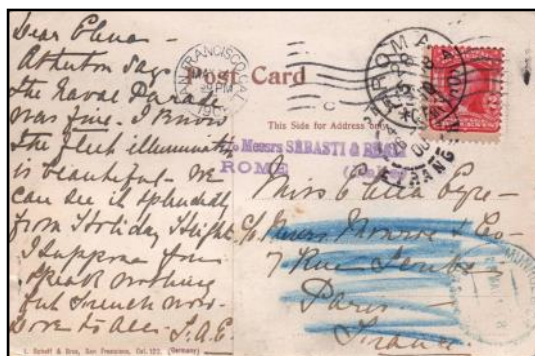 Dear Elena -
Atherton says
the Naval Parade
was fine. I know
the fleet illumination
is beautiful - we
can see it splendidly
from Holiday Hight
I suppose you
speak nothing
but French now -
Love to all - J.A.E
SAN FRANCISCO, CAL.
Post Card
ROMA
This Side for Address only
Messrs SEBASTI &
ROME
ETRANGER
Miss Elena Eyre -
c/o Messrs Monroe & Co -
7 Rue Scribe
Paris
France
Bros, San Francisco, Cal. 122. (Germany)